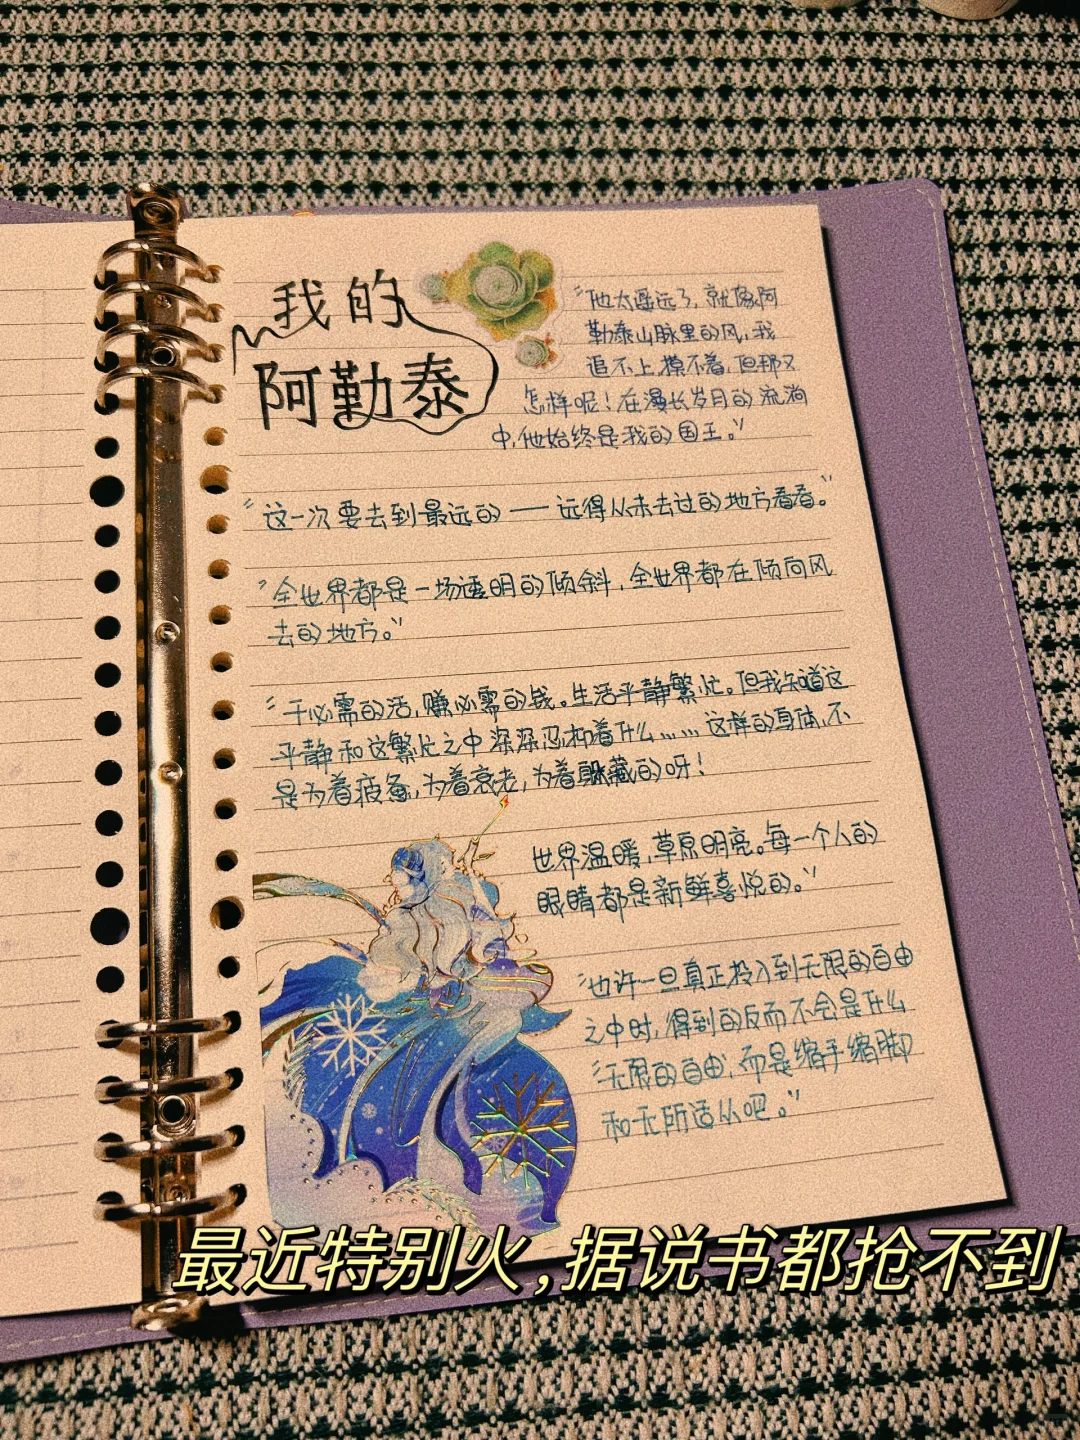 我的
阿勒泰
“他太遥远了,就像阿
勒泰山脉里的风,我
追不上,摸不着,但那又
怎样呢!在漫长岁月的流淌
中,他始终是我的国王。”
“这一次要去到最远的——远得从未去过的地方看看。”
“全世界都是一场透明的倾斜,全世界都在倾向风
去的地方。”
“干必需的活,赚必需的钱。生活平静繁忙。但我知道这
平静和这繁忙之中深深忍抑着什么……这样的身体,不
是为着疲惫,为着衰老,为着躲藏的呀!
世界温暖,草原明亮。每一个人的
眼睛都是新鲜喜悦的。”
“也许一旦真正投入到无限的自由
之中时,得到的反而不会是什么
“无限的自由”,而是缩手缩脚
和无所适从吧。”
最近特别火,据说书都抢不到